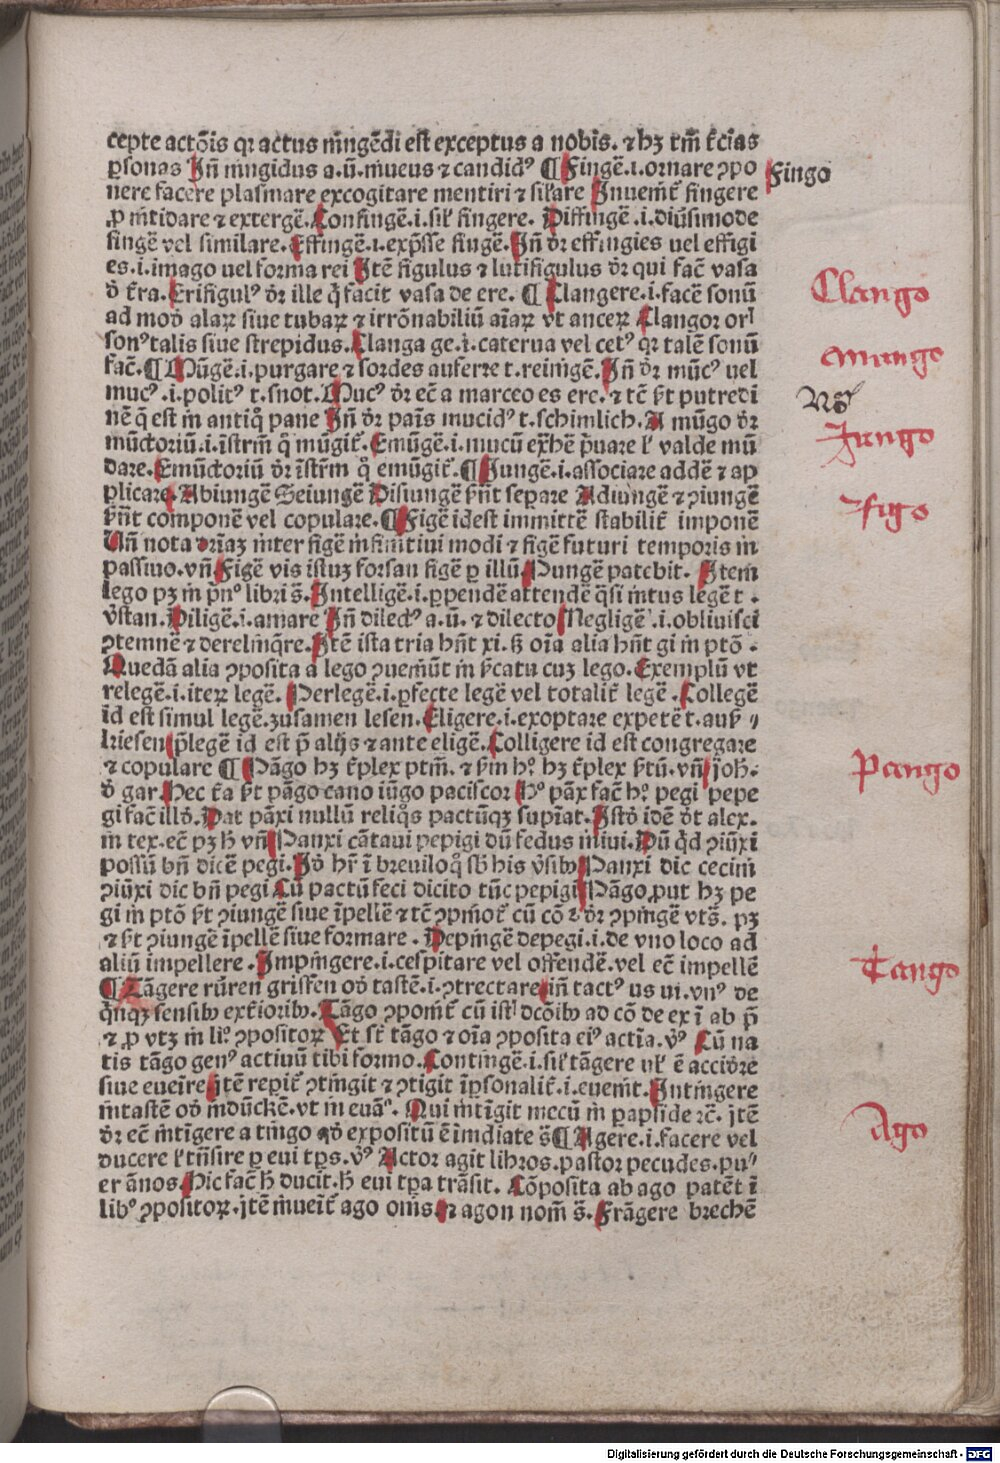 cepte actōis qꝛ actus nīngēdi est exceptus a nobis. ⁊ hꝫ tm̄ t̄cias
ꝑsonas Jn̄ ningidus a.ū.niueus ⁊ candidꝰ ¶ Fingē.i.ornare ꝯpo
Fingo
nere facere plasmare excogitare mentiri ⁊ sil'are Jnuem̄t̄ fingere
ꝓ mūdare ⁊ extergē. Confingē.i.sil' fingere. Diffingē.i.diūsimode
fingē vel similare. Effingē.i.exp̄sse fingē. Jn̄ dr̄ effingies uel effigi
es.i.imago uel forma rei Jtē figulus ⁊ lutifigulus dr̄ qui fac̄ vasa
d̄ t̄ra. Erifigulꝰ dr̄ ille q̄ facit vasa de ere. ¶ Clangere.i.facē sonū
Clango
ad mod̄ alaꝝ siue tubaꝝ ⁊ irrōnabiliū aīaꝝ vt anceꝝ Clangor or'
sonꝰtalis siue strepidus. Clanga ge.i.caterua vel cetꝰ qꝛ talē sonū
fac̄. ¶ Mūgē.i.purgare ⁊ sordes auferre t.reinīgē. Jn̄ dr̄ mūcꝰ uel
Mungo
mucꝰ.i.politꝰ t.snot. Mucꝰ dr̄ ec̄ a marceo es ere. ⁊ tc̄ ẜt putredi
nē q̄ est in antiq̊ pane Jn̄ dr̄ paīs mucidꝰ t.schimlich. A mūgo dr̄
mūctoriū.i.īstrm̄ q̊ mūgit̄. Emūgē.i.mucū exhē p̄uare l' valde mū
Jungo
dare. Emūctoriū dr̄ īstr̄m q̊ emūgit̄. ¶ Jungē.i.associare addē ⁊ ap
plicare. Abiungē Seiungē Disiungē ẜn̄t separe Adiūngē ⁊ ꝯiungē
ẜn̄t componē vel copulare. ¶ Figē idest immittē stabilit̄ imponē
Figo
Un̄ nota dr̄iaꝫ inter figē infinitiui modi ⁊ figē futuri temporis in
passiuo.vn̄. Figē vis istuꝫ forsan figē ꝑ illū. Pungē patebit. Jtem
lego pꝫ in p̄nº libri s̄. Jntelligē.i.ꝑpendē attendē q̄si intus legē t.
v̄stan. Diligē.i.amare Jn̄ dilectꝰ a.ū. ⁊ dilecto Negligē.i.obliuisci
ꝯtemnē ⁊ derelinq̄re. Jtē ista tria hn̄t xi. ꝫ oīa alia hn̄t gi in ptō.
Quedā alia ꝯposita a lego ꝯueniūt in ẜcatu cuꝫ lego. Exemplū vt
relegē.i.iteꝝ legē. Perlegē.i.ꝑfecte legē vel totalit̄ legē. Collegē
id est simul legē.zusamen lesen. Eligere.i.exoptare expetē t.auß
kiesen p̄legē id est p̄ alijs ⁊ ante eligē. Colligere id est congregare
⁊ copulare ¶ Pāgo hꝫ t̄plex ptm̄. ⁊ ẜm hº. hꝫ t̄plex ẜtū. vn̄ joh̄.
Pango
d̄ gar. Hec t̄a ẜt pāgo cano iūgo paciscor Hº pāx fac̄ hº. pegi pepe
gi fac̄ illd̄. Dat pāxi nullū reliq̄s pactūqꝫ supīat. Jstd̄ idē d̄t alex.
in tex. ec̄ pꝫ h̄ vn̄ Panxi cātaui pepigi dū fedus iniui. Dū q̄d ꝯiūxi
possū bn̄ dicē pegi. Jd̄ hr̄ ī breuiloq̊ sb̄ his v̄sibꝰ Panxi dic cecini
ꝯiūxi dic bn̄ pegi Cū pactū feci dicito tūc pepigi Pāgo ꝓut hꝫ pe
gi in ptō ẜt ꝯiungē siue īpellē ⁊ tc̄ ꝯponit̄ cū cō ⁊ dr̄ ꝯpingē vts̄. pꝫ
⁊ ẜt ꝯiungē īpellē siue formare. Depingē depegi.i.de vno loco ad
aliū impellere. Jmpingere.i.cespitare vel offendē.vel ec̄ impellē
¶ Tāgere rūren griffen od̄ tastē.i.ꝯtrectare in̄ tactꝰ us ui.vnꝰ de
Tango
q̄nqꝫ sensibꝰ ext̄ioribꝰ. Tāgo ꝯponit̄ cū ist' dcōibꝰ ad cō de ex ī ab p̄
⁊ ꝓ vtꝫ in liº ꝯpositoꝝ Et st̄ tāgo ⁊ oīa ꝯposita eiꝰ actīa. v̄ꝰ Cū na
tis tāgo genꝰ actiuū tibi formo. Contingē.i.sil' tāgere vl' ē accidr̄e
siue eueīre jtē reꝑit̄ ꝯtingit ⁊ ꝯtigit īꝑsonalit̄.i.euenit. Jntingere
intastē od̄ indūckē. vt in euāº. Qui intīgit mecū in paꝑside ꝛc̄. jtē
dr̄ ec̄ intīgere a tingo qd̄ expositū ē īmdiate s̄ ¶ Agere.i.facere vel
Ago
ducere l' trāsire ꝑ eui tꝑs. v̄ꝰ Actor agit libros. pastor pecudes. pu
er ānos. Hic fac̄ h̄ ducit. h̄ eui tꝑa trāsit. Cōposita ab ago patēt ī
libº ꝯpositoꝝ. jtē inueit̄ ago onīs. ⁊ agon nom̄ s̄. Frāgere brechē
Digitalisierung gefördert durch die Deutsche Forschungsgemeinschaft - DFG